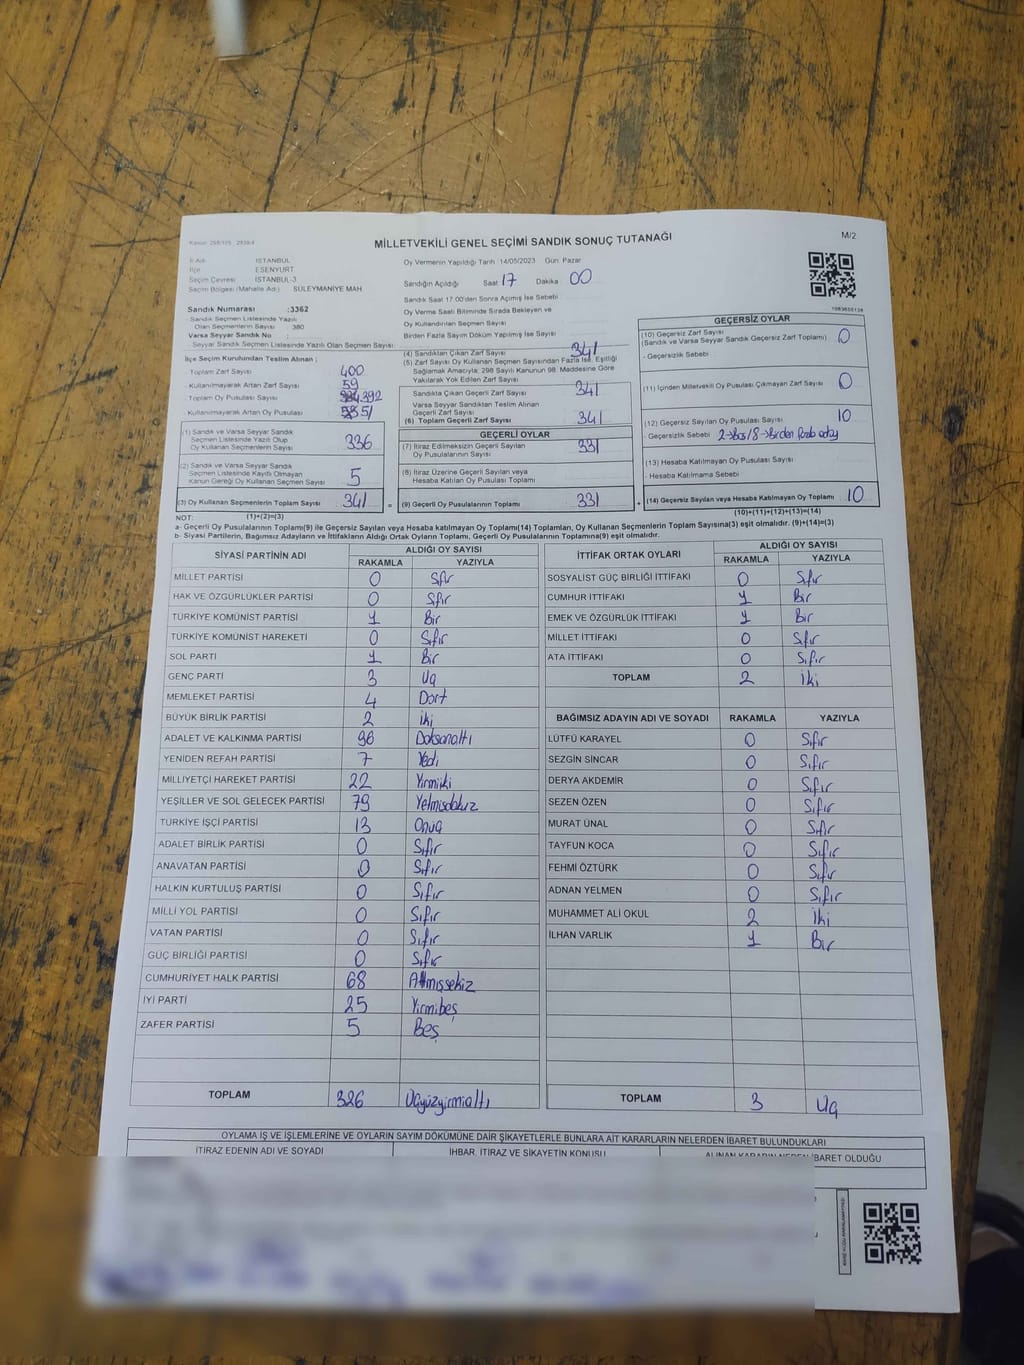 Kanun: 298/105 , 2839/4
MİLLETVEKİLİ GENEL SEÇİMİ SANDIK SONUÇ TUTANAĞI
M/2
İl Adı İSTANBUL
İlçe ESENYURT
Seçim Çevresi İSTANBUL-3
Seçim Bölgesi (Mahalle Adı) SÜLEYMANİYE MAH
Oy Vermenin Yapıldığı Tarih 14/05/2023 Gün Pazar
Sandığın Açıldığı Saat 17 Dakika 00
Sandık Saat 17.00'den Sonra Açılmış İse Sebebi
Oy Verme Saati Bitiminde Sırada Bekleyen ve
Oy Kullandırılan Seçmen Sayısı
Birden Fazla Sayım Döküm Yapılmış İse Sayısı
Sandık Numarası :3362
Sandık Seçmen Listesinde Yazılı
Olan Seçmenlerin Sayısı 380
Varsa Seyyar Sandık No :
Seyyar Sandık Seçmen Listesinde Yazılı Olan Seçmen Sayısı
İlçe Seçim Kurulundan Teslim Alınan ;
- Toplam Zarf Sayısı 400
- Kullanılmayarak Artan Zarf Sayısı 59
- Toplam Oy Pusulası Sayısı 392
- Kullanılmayarak Artan Oy Pusulası 51
(1) Sandık ve Varsa Seyyar Sandık
Seçmen Listesinde Yazılı Olup
Oy Kullanan Seçmenlerin Sayısı 336
(2) Sandık ve Varsa Seyyar Sandık
Seçmen Listesinde Kayıtlı Olmayan
Kanun Gereği Oy Kullanan Seçmen Sayısı 5
(3) Oy Kullanan Seçmenlerin Toplam Sayısı 341
(4) Sandıktan Çıkan Zarf Sayısı 341
(5) Zarf Sayısı Oy Kullanan Seçmen Sayısından Fazla İse, Eşitliği
Sağlamak Amacıyla; 298 Sayılı Kanunun 98. Maddesine Göre
Yakılarak Yok Edilen Zarf Sayısı
Sandıkta Çıkan Geçerli Zarf Sayısı 341
Varsa Seyyar Sandıktan Teslim Alınan
Geçerli Zarf Sayısı
(6) Toplam Geçerli Zarf Sayısı 341
GEÇERLİ OYLAR
(7) İtiraz Edilmeksizin Geçerli Sayılan
Oy Pusulalarının Sayısı 331
(8) İtiraz Üzerine Geçerli Sayılan veya
Hesaba Katılan Oy Pusulası Toplamı
= (9) Geçerli Oy Pusulalarının Toplamı 331
GEÇERSİZ OYLAR
(10) Geçersiz Zarf Sayısı
(Sandık ve Varsa Seyyar Sandık Geçersiz Zarf Toplamı) 0
- Geçersizlik Sebebi
(11) İçinden Milletvekili Oy Pusulası Çıkmayan Zarf Sayısı 0
(12) Geçersiz Sayılan Oy Pusulası Sayısı 10
- Geçersizlik Sebebi 2→Boş/8→Birden fazla aday
(13) Hesaba Katılmayan Oy Pusulası Sayısı
- Hesaba Katılmama Sebebi
+ (14) Geçersiz Sayılan veya Hesaba Katılmayan Oy Toplamı 10
NOT: (1)+(2)=(3)
(10)+(11)+(12)+(13)=(14)
a- Geçerli Oy Pusulalarının Toplamı(9) ile Geçersiz Sayılan veya Hesaba katılmayan Oy Toplamı(14) Toplamları, Oy Kullanan Seçmenlerin Toplam Sayısına(3) eşit olmalıdır. (9)+(14)=(3)
b- Siyasi Partilerin, Bağımsız Adayların ve İttifakların Aldığı Ortak Oyların Toplamı, Geçerli Oy Pusulalarının Toplamına(9) eşit olmalıdır.
SİYASİ PARTİNİN ADI ALDIĞI OY SAYISI
RAKAMLA YAZIYLA
MİLLET PARTİSİ 0 Sıfır
HAK VE ÖZGÜRLÜKLER PARTİSİ 0 Sıfır
TÜRKİYE KOMÜNİST PARTİSİ 1 Bir
TÜRKİYE KOMÜNİST HAREKETİ 0 Sıfır
SOL PARTİ 1 Bir
GENÇ PARTİ 3 Üç
MEMLEKET PARTİSİ 4 Dört
BÜYÜK BİRLİK PARTİSİ 2 iki
ADALET VE KALKINMA PARTİSİ 96 Doksanaltı
YENİDEN REFAH PARTİSİ 7 Yedi
MİLLİYETÇİ HAREKET PARTİSİ 22 Yirmiiki
YEŞİLLER VE SOL GELECEK PARTİSİ 79 Yetmişdokuz
TÜRKİYE İŞÇİ PARTİSİ 13 Onüç
ADALET BİRLİK PARTİSİ 0 Sıfır
ANAVATAN PARTİSİ 0 Sıfır
HALKIN KURTULUŞ PARTİSİ 0 Sıfır
MİLLİ YOL PARTİSİ 0 Sıfır
VATAN PARTİSİ 0 Sıfır
GÜÇ BİRLİĞİ PARTİSİ 0 Sıfır
CUMHURİYET HALK PARTİSİ 68 Altmışsekiz
İYİ PARTİ 25 Yirmibeş
ZAFER PARTİSİ 5 Beş
TOPLAM 326 Üçyüzyirmialtı
İTTİFAK ORTAK OYLARI ALDIĞI OY SAYISI
RAKAMLA YAZIYLA
SOSYALİST GÜÇ BİRLİĞİ İTTİFAKI 0 Sıfır
CUMHUR İTTİFAKI 1 Bir
EMEK VE ÖZGÜRLÜK İTTİFAKI 1 Bir
MİLLET İTTİFAKI 0 Sıfır
ATA İTTİFAKI 0 Sıfır
TOPLAM 2 iki
BAĞIMSIZ ADAYIN ADI VE SOYADI RAKAMLA YAZIYLA
LÜTFÜ KARAYEL 0 Sıfır
SEZGİN SİNCAR 0 Sıfır
DERYA AKDEMİR 0 Sıfır
SEZEN ÖZEN 0 Sıfır
MURAT ÜNAL 0 Sıfır
TAYFUN KOCA 0 Sıfır
FEHMİ ÖZTÜRK 0 Sıfır
ADNAN YELMEN 0 Sıfır
MUHAMMET ALİ OKUL 2 İki
İLHAN VARLIK 1 Bir
TOPLAM 3 Üç
OYLAMA İŞ VE İŞLEMLERİNE VE OYLARIN SAYIM DÖKÜMÜNE DAİR ŞİKAYETLERLE BUNLARA AİT KARARLARIN NELERDEN İBARET BULUNDUKLARI
İTİRAZ EDENİN ADI VE SOYADI İHBAR, İTİRAZ VE ŞİKAYETİN KONUSU ALINAN KARARIN NEDEN İBARET OLDUĞU